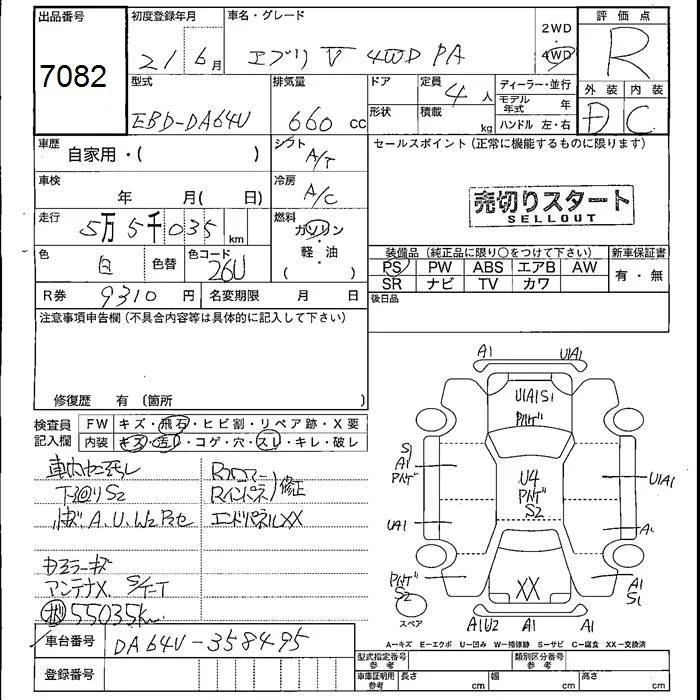 出品番号
7082
初度登録年月
21 6月
車名・グレード
エブリ V 4WD PA
2WD
・
4WD
評価点
R
型式
EBD-DA64V
排気量
660 cc
ドア
形状
定員
4 人
積載
kg
ディーラー・並行
モデル年式 年
ハンドル 左・右
外装 内装
D C
車歴
自家用・( )
シフト
A/T
セールスポイント (正常に機能するものに限ります)
車検
年 月( 日)
冷房
A/C
売切りスタート
SELLOUT
走行
5万5千035 km
燃料
ガソリン
・
軽・油
( )
色
白
色替
色コード
26U
装備品 (純正品に限り○をつけて下さい)
新車保証書
PS PW ABS エアB AW
SR ナビ TV カワ
有・無
R券 9310 円
名変期限 月 日
後日品
注意事項申告欄 (不具合内容等は具体的に記入して下さい)
修復歴 有 (箇所 )
検査員
記入欄
FW キズ・飛石・ヒビ割・リペア跡・X要
内装 キズ・汚れ・コゲ・穴・スレ・キレ・破レ
下回りS2
A.U.W2
Rインパネ
修正
エンドパネルXX
アンテナX
55035km
車台番号 DA64V-358495
登録番号
A1 U1A1
U1A1S1
S1
A1
U4
S2
U1A1
UA1
A1
S2
XX
A1
S1
スペア
A1U2 A1 A1
A－キズ E－エクボ U－凹み W－補修跡 S－サビ C－腐食 XX－交換済
型式指定番号
参考
類別区分番号
参考
車庫証明用
参考
長さ cm
幅 cm
高さ cm